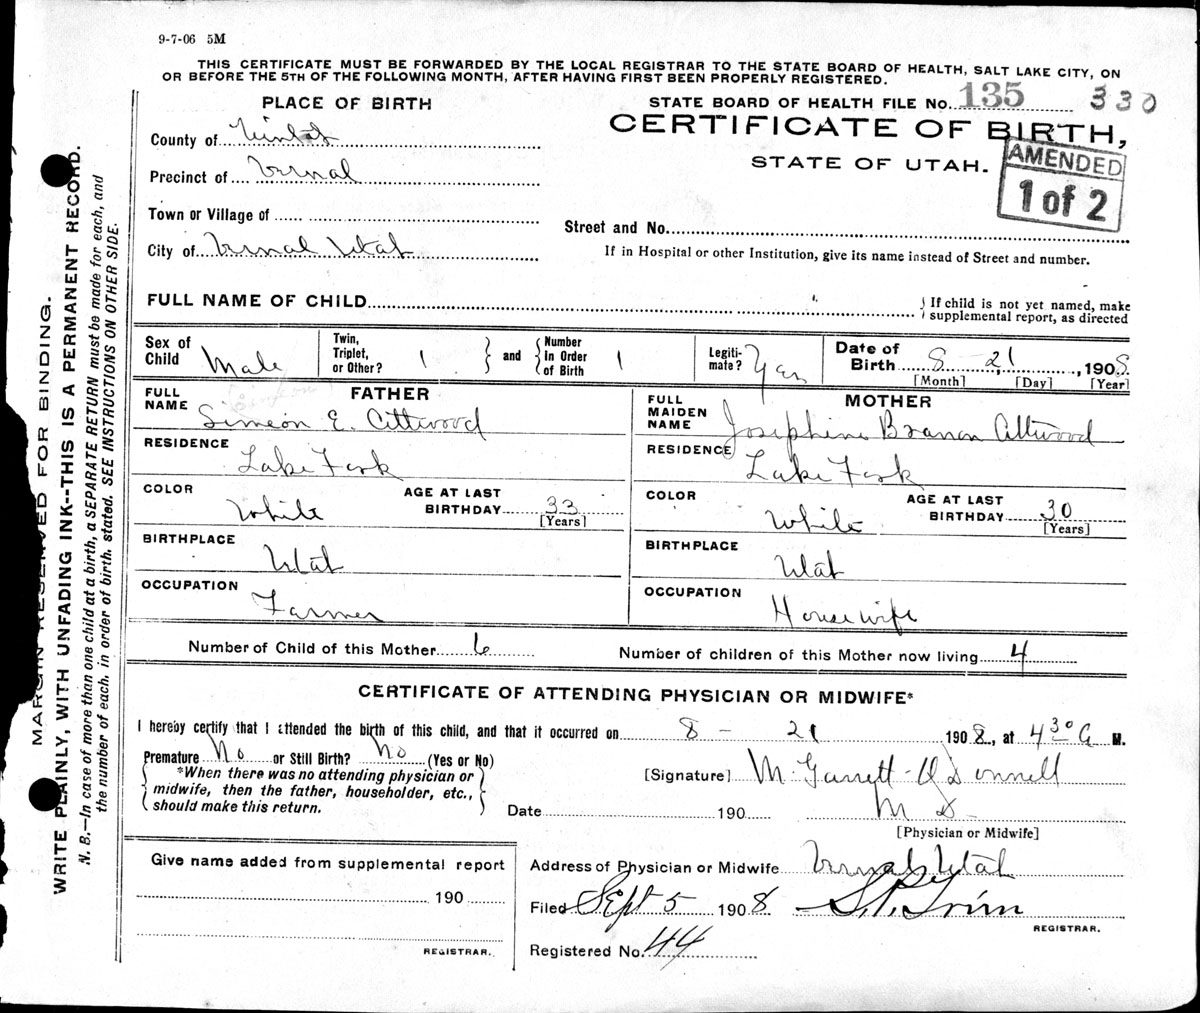 9-7-06 5M
THIS CERTIFICATE MUST BE FORWARDED BY THE LOCAL REGISTRAR TO THE STATE BOARD OF HEALTH, SALT LAKE CITY, ON
OR BEFORE THE 5TH OF THE FOLLOWING MONTH, AFTER HAVING FIRST BEEN PROPERLY REGISTERED.
PLACE OF BIRTH
STATE BOARD OF HEALTH FILE No. 135 330
CERTIFICATE OF BIRTH,
STATE OF UTAH.
AMENDED
1 of 2
County of Uintah
Precinct of Vernal
Town or Village of
Street and No.
City of Vernal Utah
If in Hospital or other Institution, give its name instead of Street and number.
FULL NAME OF CHILD
{ If child is not yet named, make
supplemental report, as directed
Sex of Child Male
Twin, Triplet, or Other? 1 } and { Number In Order of Birth 1
Legitimate? Yes
Date of Birth 8 21, 1908
[Month] [Day] [Year]
FATHER
FULL NAME Simeon E. Attwood
RESIDENCE Lake Fork
COLOR White
AGE AT LAST BIRTHDAY 33 [Years]
BIRTHPLACE Utah
OCCUPATION Farmer
MOTHER
FULL MAIDEN NAME Josephine Attwood
RESIDENCE Lake Fork
COLOR White
AGE AT LAST BIRTHDAY 30 [Years]
BIRTHPLACE Utah
OCCUPATION Housewife
Number of Child of this Mother 6
Number of children of this Mother now living 4
CERTIFICATE OF ATTENDING PHYSICIAN OR MIDWIFE*
I hereby certify that I attended the birth of this child, and that it occurred on 8 - 21 1908, at 4 30 A M.
Premature No or Still Birth? No (Yes or No)
{ *When there was no attending physician or
midwife, then the father, householder, etc.,
should make this return. }
[Signature] M. Garrett O'Donnell
Date 190 M D
[Physician or Midwife]
Give name added from supplemental report
190
REGISTRAR.
Address of Physician or Midwife Vernal Utah
Filed Sept 5 1908
REGISTRAR.
Registered No. 44
MARGIN RESERVED FOR BINDING.
WRITE PLAINLY, WITH UNFADING INK--THIS IS A PERMANENT RECORD.
N. B.—In case of more than one child at a birth, a SEPARATE RETURN must be made for each, and
the number of each, in order of birth, stated. SEE INSTRUCTIONS ON OTHER SIDE.